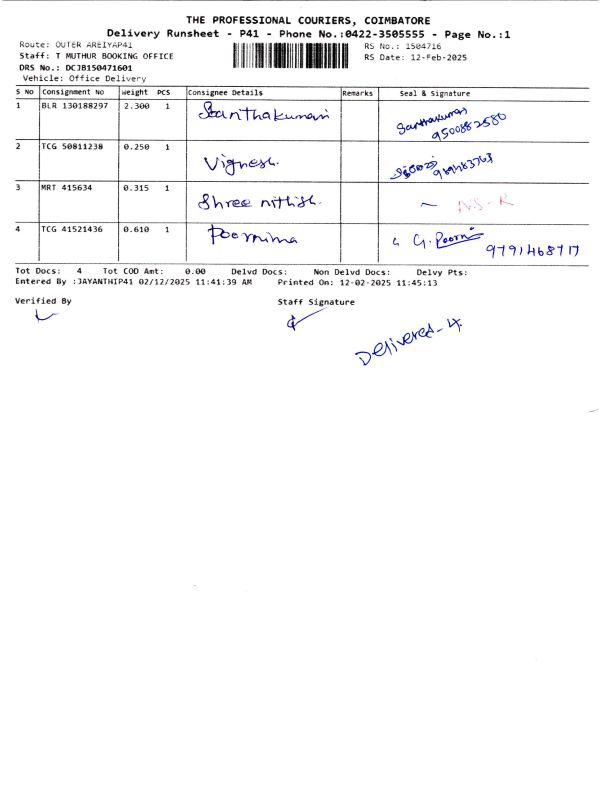 THE PROFESSIONAL COURIERS, COIMBATORE
Delivery Runsheet - P41 - Phone No.:0422-3505555 - Page No.:1
Route: OUTER AREIYAP41 RS No.: 1504716
Staff: T MUTHUR BOOKING OFFICE RS Date: 12-Feb-2025
DRS No.: DCJB150471601
Vehicle: Office Delivery
S No Consignment No Weight PCS Consignee Details Remarks Seal & Signature
1 BLR 130188297 2.300 1 Santhakumari Santhakumari
9500882580
2 TCG 50811238 0.250 1 Vignesh.
3 MRT 415634 0.315 1 Shree nithish. ~ N.S-R
4 TCG 41521436 0.610 1 Poornima G. Poorni
9791468717
Tot Docs: 4 Tot COD Amt: 0.00 Delvd Docs: Non Delvd Docs: Delvy Pts:
Entered By :JAYANTHIP41 02/12/2025 11:41:39 AM Printed On: 12-02-2025 11:45:13
Verified By Staff Signature
Delivered-4.